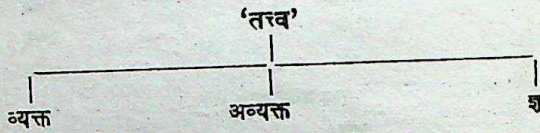 ‘तत्त्व’
व्यक्त अव्यक्त ज्ञ